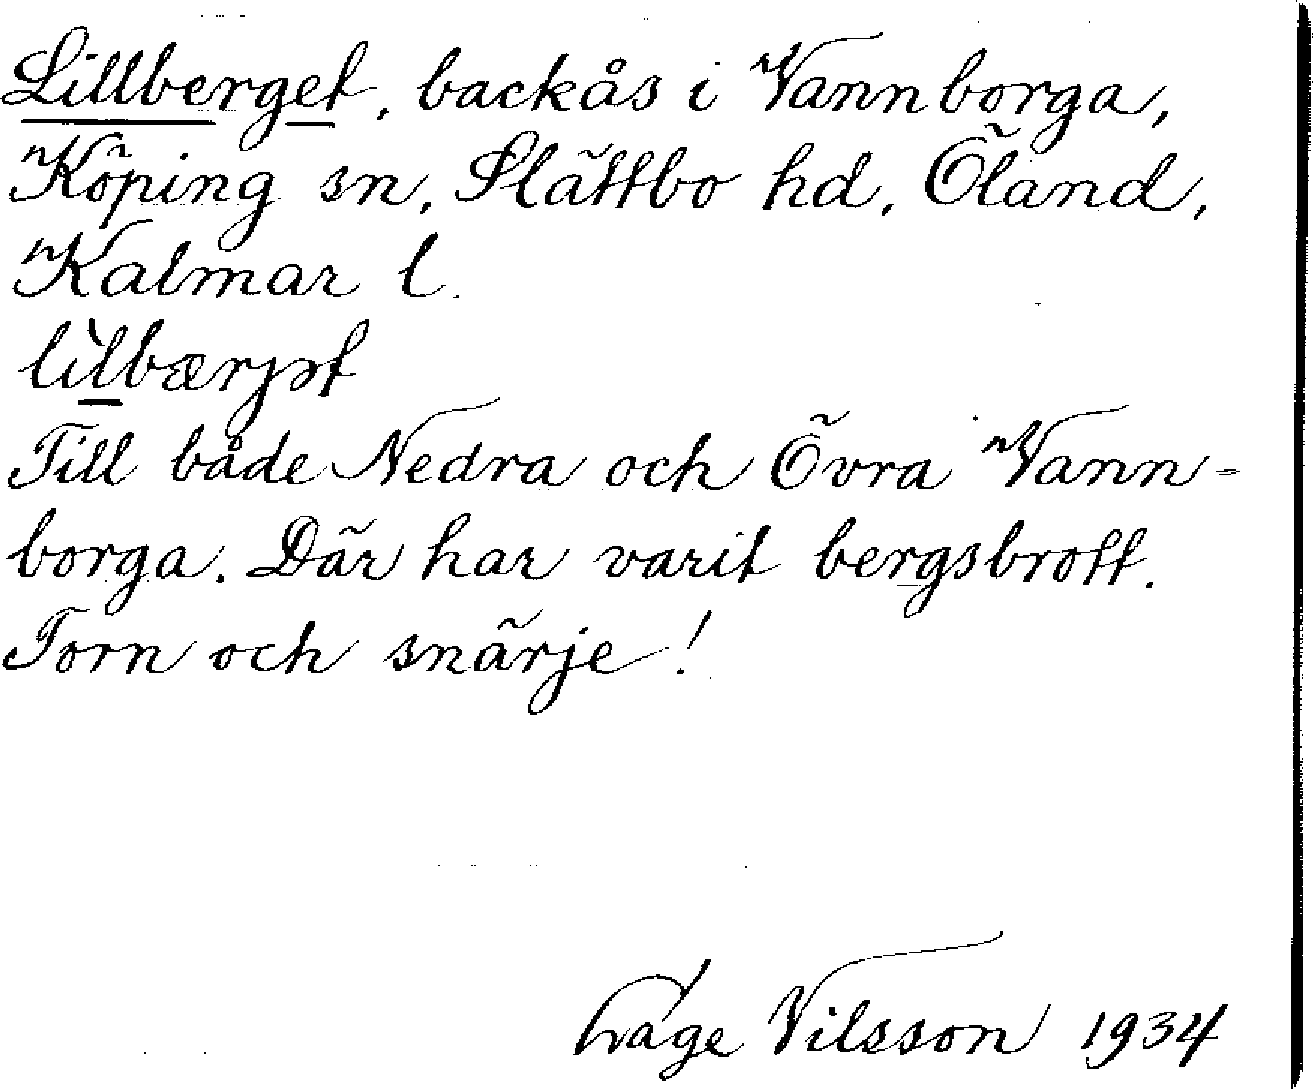 Lillberget, backås i Vannborga,
Köping sn, Slättbo hd, Öland,
Kalmar l.
lìlbærjət
Till både Nedra och Övra Vann-
borga. Där har varit bergsbrott.
Torn och snärje!
Låge Nilsson 1934